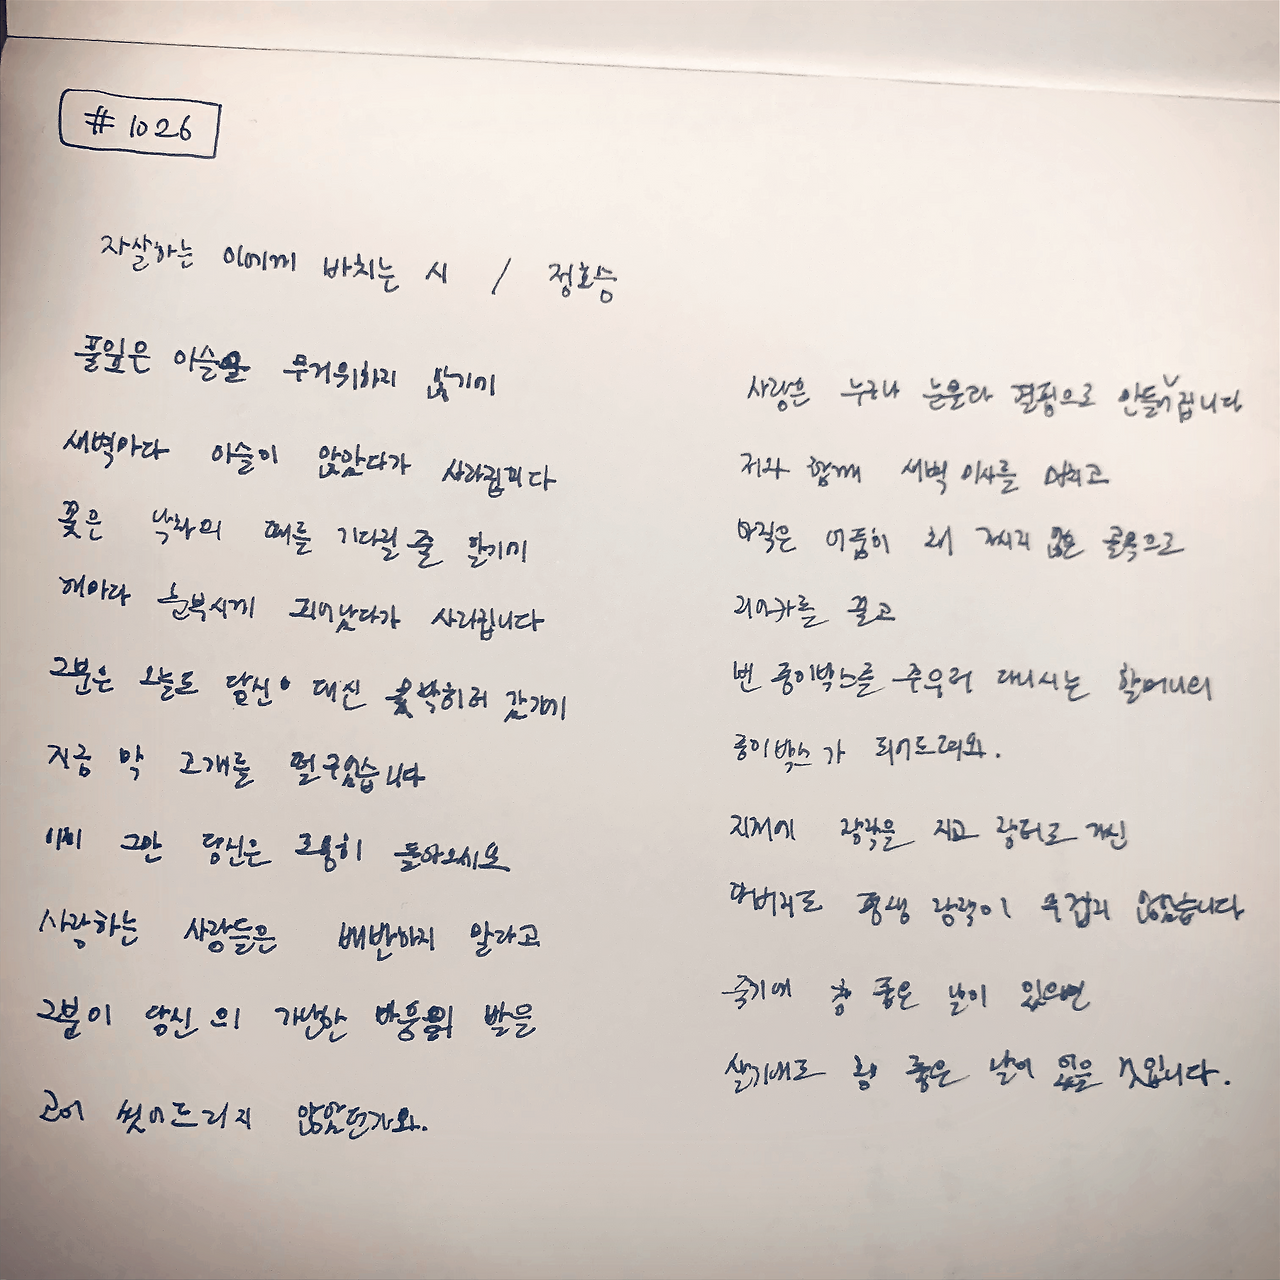 #1026
자살하는 이에게 바치는 시 / 정호승
풀잎은 이슬을 무거워하지 않기에
새벽마다 이슬이 앉았다가 사라집니다
꽃은 낙화의 때를 기다릴 줄 알기에
해마다 눈부시게 피어났다가 사라집니다
그분은 오늘도 당신이 대신 못박히러 갔기에
지금 막 고개를 떨구었습니다
이미 그만 당신은 조용히 돌아오시오
사랑하는 사람들은 배반하지 말라고
그분이 당신의 가난한 마음의 발을
고이 씻어드리지 않았던가요.
사랑은 누구나 눈물과 결핍으로 만들어집니다
저와 함께 새벽 미사를 마치고
아직은 어둠이 채 가시지 않은 골목으로
리어카를 끌고
빈 종이박스를 주우러 다니시는 할머니의
종이박스가 되어드려요.
지게에 장작을 지고 장터로 가신
아버지도 평생 장작이 무겁지 않았습니다
죽기에 참 좋은 날이 있으면
살기에도 참 좋은 날이 있을 것입니다.